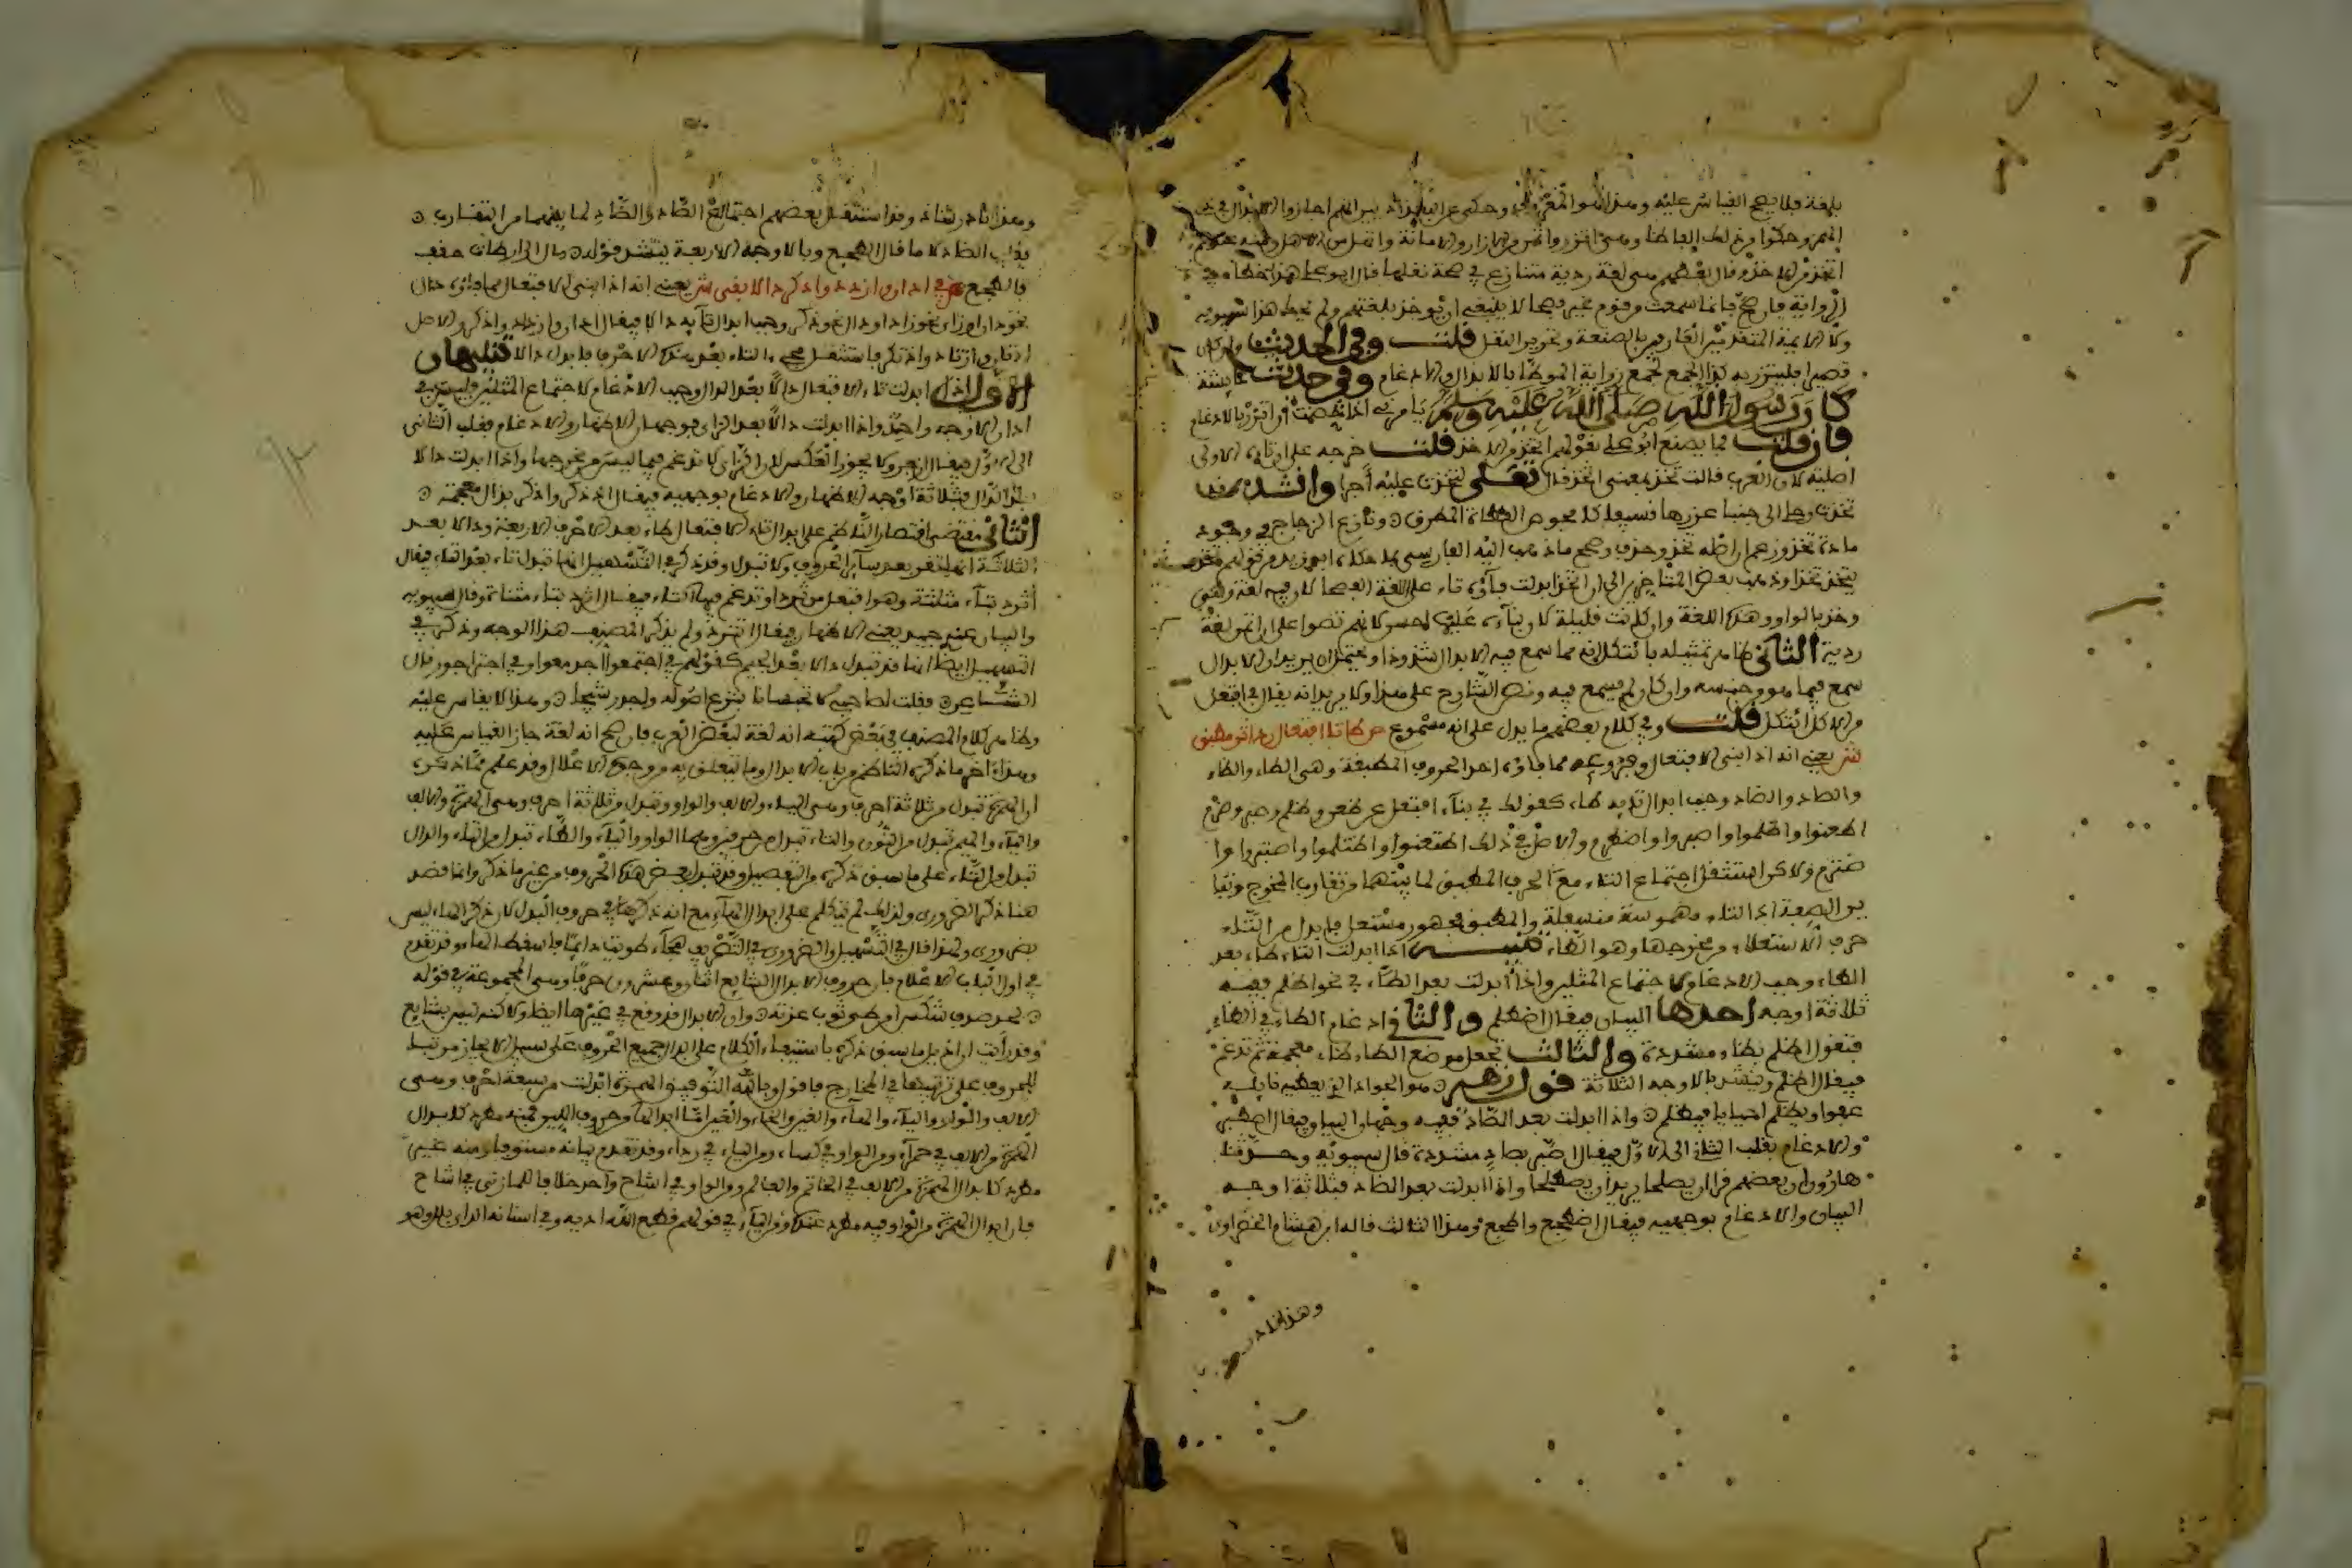 بلغة فلا يصح القياس عليه وهذا هو المعروف وحكى عن البغداديين انهم اجازوا الابدال في ذي
الهمز وحكوا من ذلك الفاظا وهي اتزر واتمن من الازار والامانة واتهل من الاهل ومنه عندهم
اتخذ من الاخذ وقال بعضهم هي لغة ردية متنازع في صحة نقلها قال ابو علي هذا خطا في
الرواية فان صح فانما سمعت من قوم غير فصحا لا ينبغي ان يوخذ بلغتهم ولم يحك هذا سيبويه
ولا الايمة المتقدمين العارفين بالصنعة وتحرير النقل قلت وفي الحديث وان كان
قصيرا فليتزر به كذا لجميع رواية الموطا بالابدال والادغام وفي حديث عايشة
كان رسول الله صلى الله عليه وسلم يامرني اذا حضت ان اتزر بالادغام
فان قلت فما يصنع ابو علي بقولهم اتخذ من الاخذ قلت خرجه على ان تاءه الاولى
اصلية لان العرب قالت تخذ بمعنى اتخذ قال تعلى لتخذت عليه اجرا وانشد وقد
تخذت رجلي الى جنب غرزها نسيفا كافحوص القطاة المطرق ونازع الزجاج في وجود
مادة تخذ وزعم ان اصله اتخذ وحذف وصحح ما ذهب اليه الفارسي بما حكاه ابو زيد من قولهم تخذ
يتخذ تخذا وذهب بعض المتاخرين الى ان اتخذ ابدلت فاؤه تاء على اللغة الفصحا لان فيه لغة وهي
وخذ بالواو وهذه اللغة وان كانت قليلة لان بناءه عليها احسن لانهم نصوا على ان اتمن لغة
ردية الثاني ظاهر تمثيله بائتكلا انه مما سمع فيه الابدال شذوذا ويحتمل ان يريد ان الابدال
سمع فيما هو من جنسه وان كان لم يسمع فيه ونص الشارح على هذا ولا يريد انه يقال في افتعل
من الاكل ائتكل قلت وفي كلام بعضهم ما يدل على انه مسموع ص طا تا افتعال رد اثر مطبق
ش يعني انه اذا بني الافتعال وفروعه مما فاؤه احد الحروف المطبقة وهي الطاء والظاء
والصاد والضاد وجب ابدال تايه طاء كقولك في بناء افتعل من طعن وظلم وصبر وضرم
اطعنوا واظلموا واصبروا واضطرم والاصل في ذلك اطتعنوا واظتلموا واصتبروا وا
ضترم ولاكن استثقل اجتماع التاء مع الحرف المطبق لما بينهما من تقارب المخرج وتبا
ين الصفة اذ التاء مهموسة منسفلة والمطبق مجهور مستعل فابدل من التاء
حرف الاستعلاء من مخرجها وهو الطاء تنبيه اذا ابدلت التاء طاء بعد
الطاء وجب الادغام لاجتماع المثلين واذا ابدلت بعد الظاء في نحو اظلم ففيه
ثلاثة اوجه احدها البيان فيقال اظطلم والثاني ادغام الظاء في الطاء
فتقول اطلم بطاء مشددة والثالث تجعل موضع الطاء ظاء معجمة ثم تدغم
فيقال اظلم وينشد بالاوجه الثلاثة قول زهير هو الجواد الذي يعطيك نايله
عفوا ويظلم احيانا فيظلم واذا ابدلت بعد الصاد ففيه وجهان البيان فيقال اصطبر
والادغام بقلب الثاني الى الاول فيقال اصبر بصاد مشددة قال سيبويه وحدثنا
هارون ان بعضهم قرا ان يصلحا يريد ان يصطلحا واذا ابدلت بعد الضاد فثلاثة اوجه
البيان والادغام بوجهيه فيقال اضطجع واضجع واطجع وهذا الثالث قاله ابن هشام الخضراوي
وهذا نادر
وهذا نادر شاذ وقد استثقل بعضهم اجتماع الضاد والطاء لما بينهما من التقارب
فقلب الضاد لاما فقال الطجع وبالاوجه الاربعة ينشد قوله مال الى ارطاة حقف
فالطجع ص في ادان وازدد وادكر دالا بقي ش يعني انه اذا بني الافتعال مما فاؤه دال
نحو دان او زاء نحو زاد او ذال نحو ذكر وجب ابدال تايه دالا فيقال ادان وازداد واذكر والاصل
ادتان وازتاد واذتكر فاستثقل مجيء التاء بعد هذه الاحرف فابدل دالا تنبيهان
الاول اذا ابدلت تاء الافتعال دالا بعد الدال وجب الادغام لاجتماع المثلين فليس في
ادان الا وجه واحد واذا ابدلت دالا بعد الزاي فوجهان الاظهار والادغام بقلب الثاني
الى الاول فيقال ازجر ولا يجوز العكس لان الزاي لا تدغم فيما ليس من مخرجها واذا ابدلت دالا
بعد الذال فثلاثة اوجه الاظهار والادغام بوجهيه فيقال اذدكر واذكر بذال معجمة
الثاني مقتضى اقتصار الناظم على ابدال تاء الافتعال طاء بعد الاحرف الاربعة ودالا بعد
الثلاثة انها تقر بعد ساير الحروف ولا تبدل وقد ذكر في التسهيل انها تبدل ثاء بعد الثاء فيقال
اثرد بثاء مثلثة وهو افتعل من ثرد او تدغم فيها التاء فيقال اترد بتاء مثناة قال سيبويه
والبيان عندي جيد يعني الاظهار فيقال اثترد ولم يذكر المصنف هذا الوجه وذكر في
التسهيل ايضا انها قد تبدل دالا بعد الجيم كقولهم في اجتمعوا اجدمعوا وفي اجتز اجدز قال
الشاعر فقلت لصاحبي لا تحبسانا بنزع اصوله واجدز شيحا وهذا لا يقاس عليه
وظاهر كلام المصنف في بعض كتبه انه لغة لبعض العرب فان صح انه لغة جاز القياس عليه
وهذا اخر ما ذكره الناظم من باب الابدال وما يتعلق به من وجوه الاعلال وقد علم مما ذكره
ان الهمزة تبدل من ثلاثة احرف وهي الياء والالف والواو وتبدل من ثلاثة احرف وهي الهمزة والالف
والياء والميم تبدل من النون والتاء تبدل من حرفين وهما الواو والياء والطاء تبدل من التاء والدال
تبدل من التاء على ما سبق ذكره من التفصيل وقد تبدل بعض هذه الحروف من غير ما ذكر وانما قصد
هنا ذكر الضروري ولذلك لم يتكلم على ابدال الهاء مع انه ذكرها في حروف البدل لان ذكر الهاء ليس
بضروري ولهذا قال في التسهيل والضروري في التصريف هجاء طويت دايما فاسقط الهاء وقد تقدم
في اول الباب الاعلام بان حروف الابدال الشايع اثنان وعشرون حرفا وهي المجموعة في قوله
لجد صرف شكس امن طي ثوب عزته وان الابدال قد وقع في غيرها ايضا ولاكنه ليس بشايع
وقد رايت ان اذيل ما سبق ذكره باستيفاء الكلام على ابدال جميع الحروف على سبيل الايجاز مرتبا
للحروف على ترتيبها في المخارج فاقول وبالله التوفيق الهمزة ابدلت من سبعة احرف وهي
الالف والواو والياء والهاء والعين والخاء والغين اما ابدالها من حروف اللين فمنه مطرد كابدال
الهمزة من الالف في حمراء ومن الواو في كساء ومن الياء في رداء وقد تقدم بيانه مستوفا ومنه غير
مطرد كابدال الهمزة من الالف في الخاتم والعالم ومن الواو في اشاح واحد خلافا للمازني في اشاح
فان ابدال الهمزة من الواو فيه مطرد عنده ومن الياء في قولهم قطع الله اديه وفي اسنانه الل اي يلل وهو